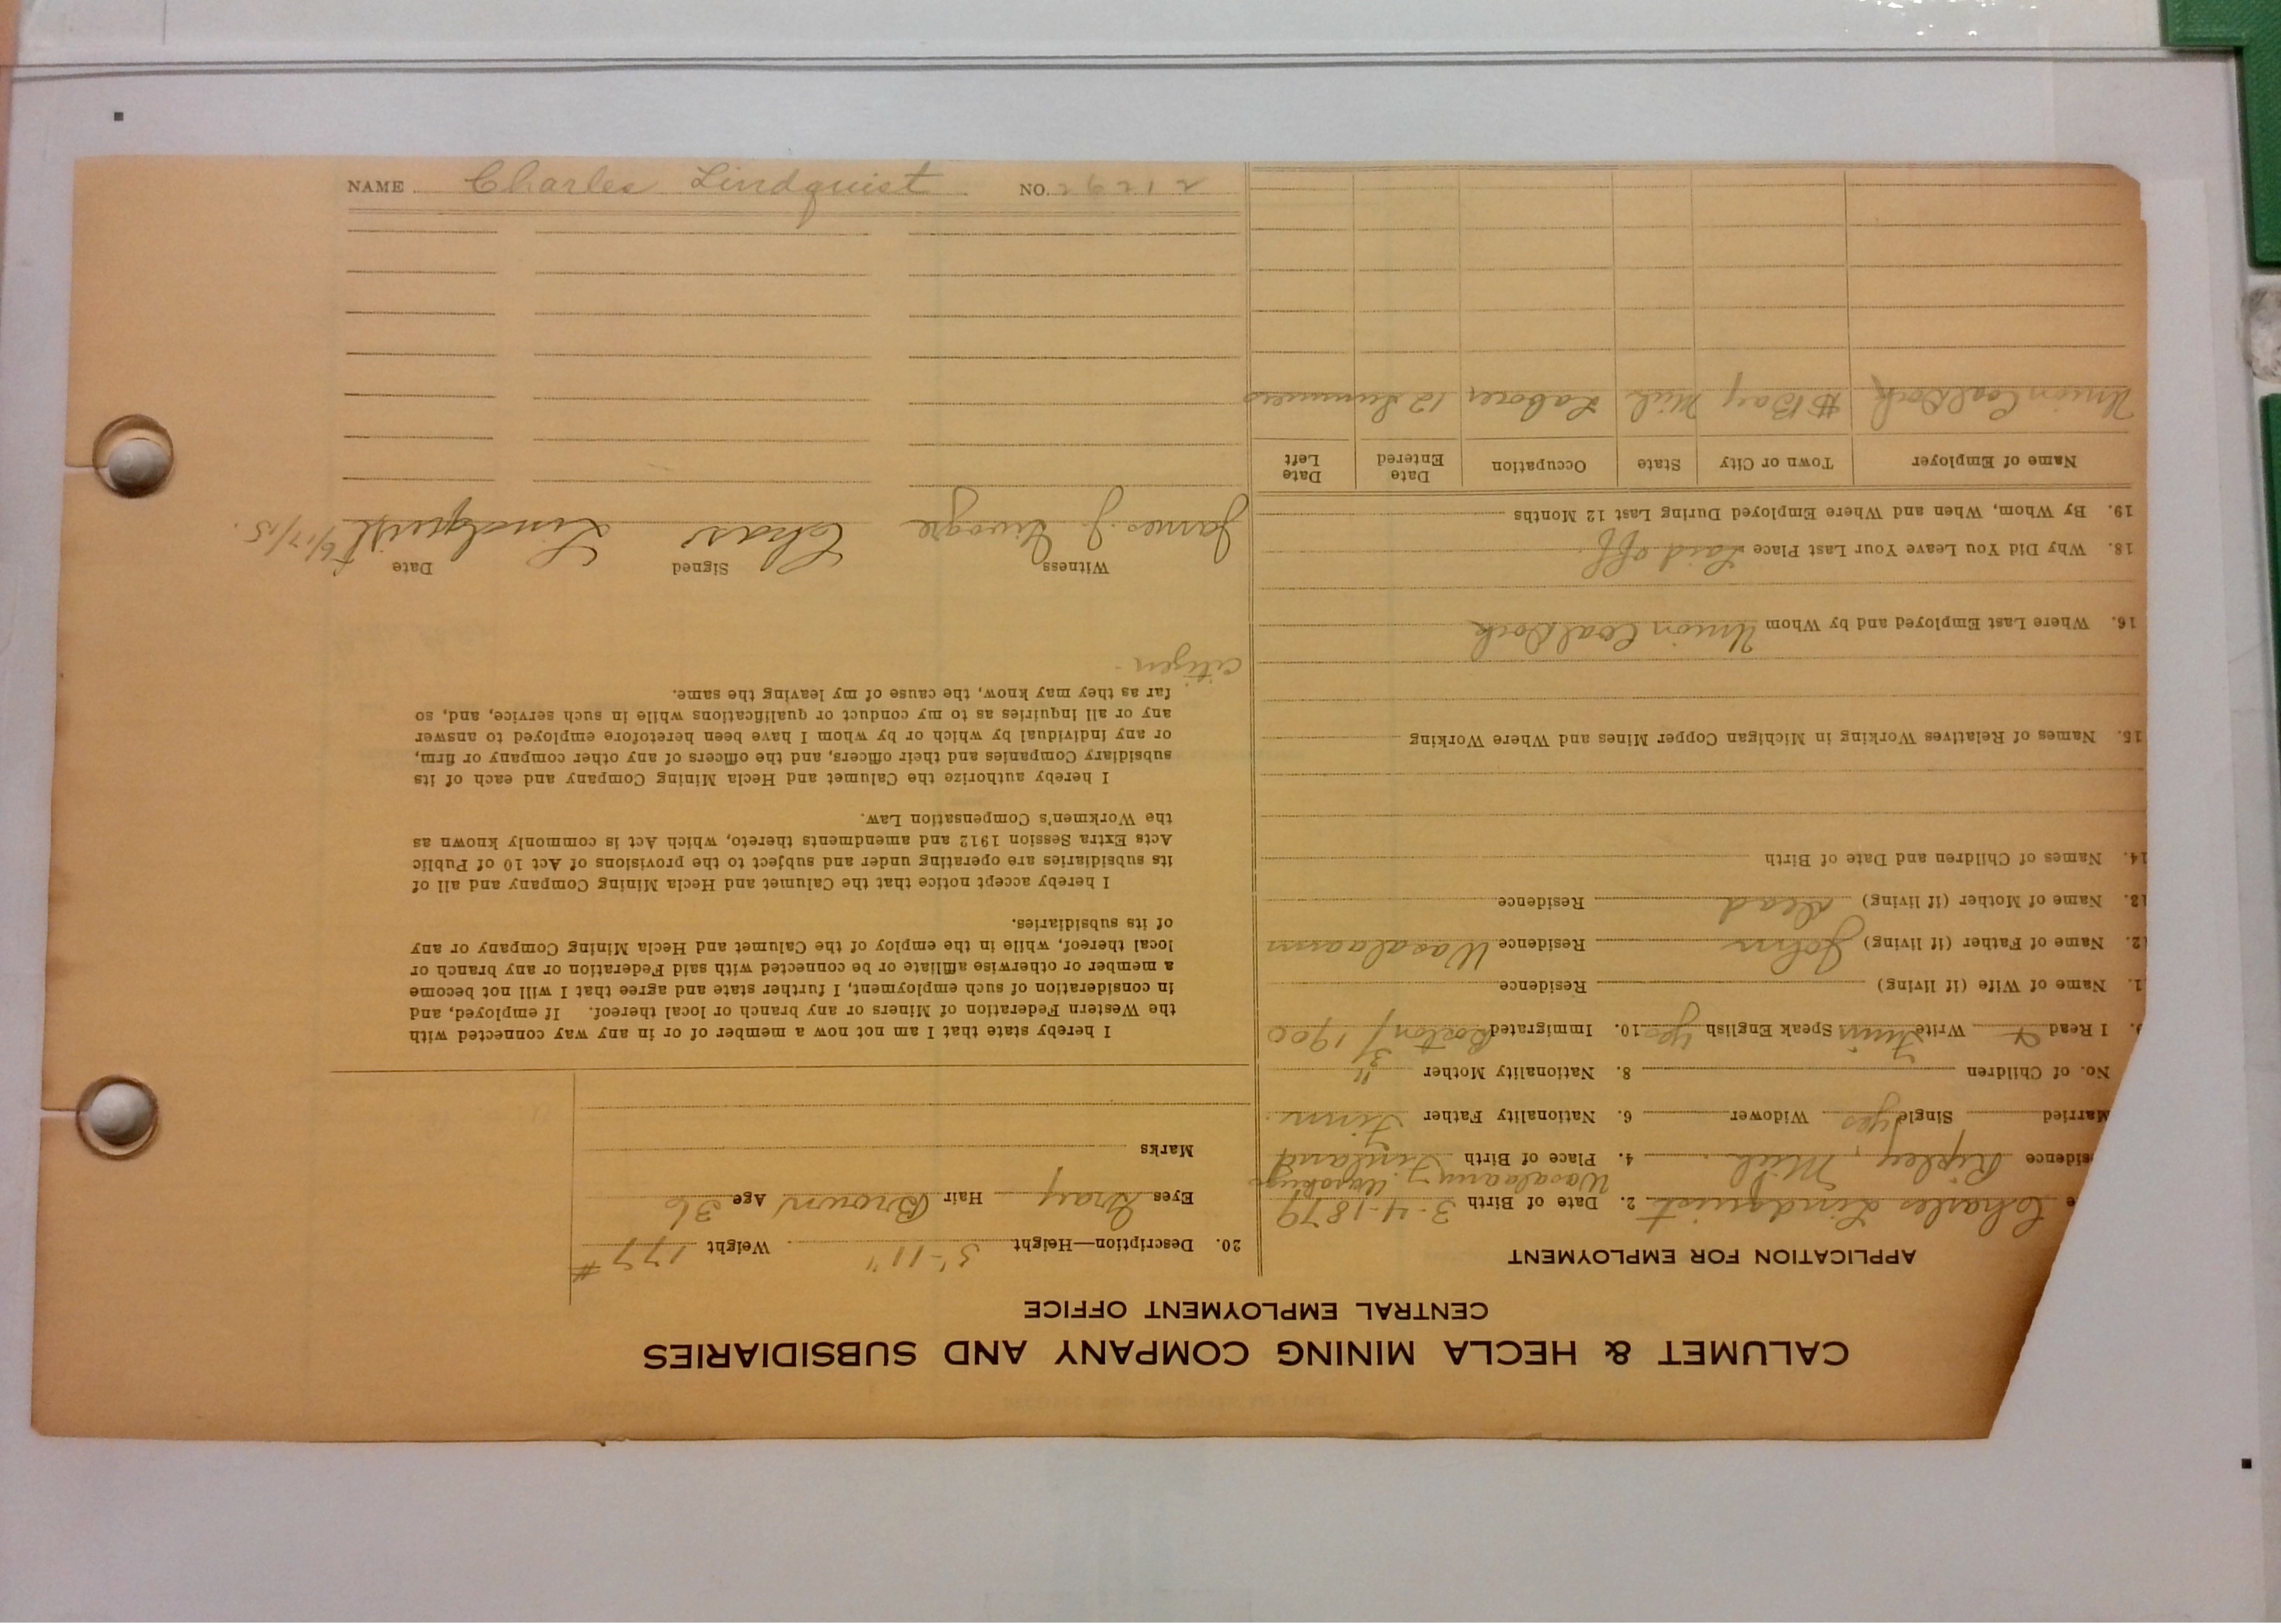 CALUMET & HECLA MINING COMPANY AND SUBSIDIARIES
CENTRAL EMPLOYMENT OFFICE
APPLICATION FOR EMPLOYMENT
e Charles Lindquist 2. Date of Birth 3-4-1879
sidence Ripley, Mich. 4. Place of Birth Finland
Married Single yes Widower 6. Nationality Father Finn.
No. of Children 8. Nationality Mother "
9. I Read & Write Finn Speak English yes 10. Immigrated Boston 3/1900
1. Name of Wife (if living) Residence
12. Name of Father (if living) John Residence Wasalaann
13. Name of Mother (if living) dead Residence
14. Names of Children and Date of Birth
15. Names of Relatives Working in Michigan Copper Mines and Where Working
16. Where Last Employed and by Whom Union Coal Dock
18. Why Did You Leave Your Last Place Laid off.
19. By Whom, When and Where Employed During Last 12 Months
Name of Employer Town or City State Occupation Date Entered Date Left
Union Coal Dock Bay Mich Laborer 12 Summers
20. Description—Height 5'-11" Weight 177 #
Eyes Gray Hair Brown Age 36
Marks
I hereby state that I am not now a member of or in any way connected with
the Western Federation of Miners or any branch or local thereof. If employed, and
in consideration of such employment, I further state and agree that I will not become
a member or otherwise affiliate or be connected with said Federation or any branch or
local thereof, while in the employ of the Calumet and Hecla Mining Company or any
of its subsidiaries.
I hereby accept notice that the Calumet and Hecla Mining Company and all of
its subsidiaries are operating under and subject to the provisions of Act 10 of Public
Acts Extra Session 1912 and amendments thereto, which Act is commonly known as
the Workmen's Compensation Law.
I hereby authorize the Calumet and Hecla Mining Company and each of its
subsidiary Companies and their officers, and the officers of any other company or firm,
or any individual by which or by whom I have been heretofore employed to answer
any or all inquiries as to my conduct or qualifications while in such service, and, so
far as they may know, the cause of my leaving the same.
citizen -
Witness Signed Date
James J. Chas Lindquist 6/17/15.
NAME Charles Lindquist NO. 26212